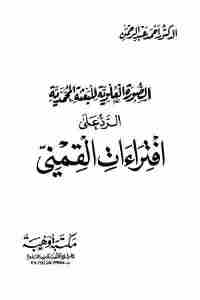 الدكتور أحمد عبد الرحمن
الصورة العلوية للبعثة المحمدية
الرد على
افتراءات القمني
مكتبة وهبة